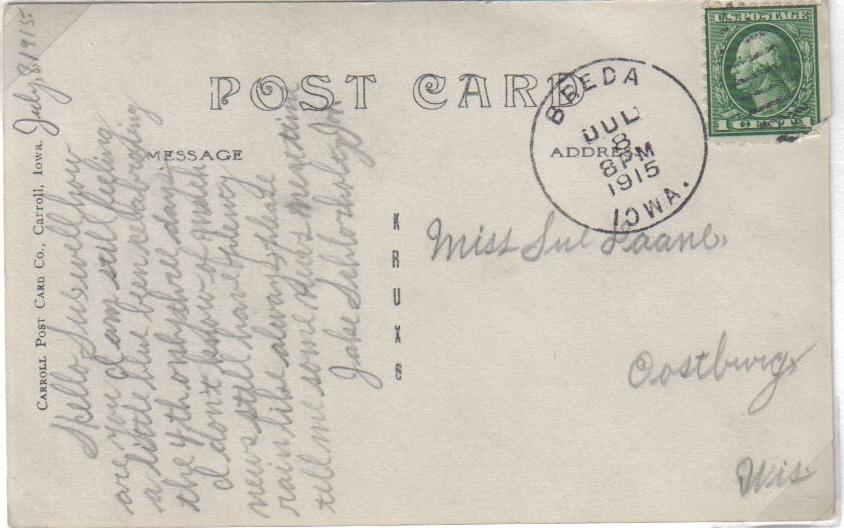 POST CARD
MESSAGE
ADDRESS
CARROLL POST CARD CO., Carroll, Iowa.
July, 8, 1915
Hello Sue well how
are you I am still feeling
a little blue been celebrating
the 4th only three days
I don't know of much
news still have plenty
rain like always please
tell me some news next time
Jake
KRUXO
BREDA
JUL
8
8 PM
1915
IOWA.
U.S. POSTAGE
1 CENT 1
Miss Sue
Oostburg
Wis.